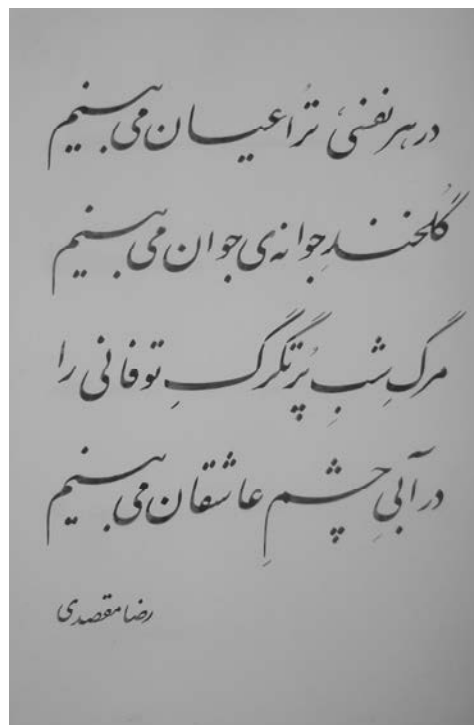 در هر نفسی، تُرا عیان می بینم
گُلخندِ جوانه ی جوان می بینم
مرگِ شبِ پُر تگرگِ توفانی را
در آبیِ چشمِ عاشقان می بینم
رضا مقصدی